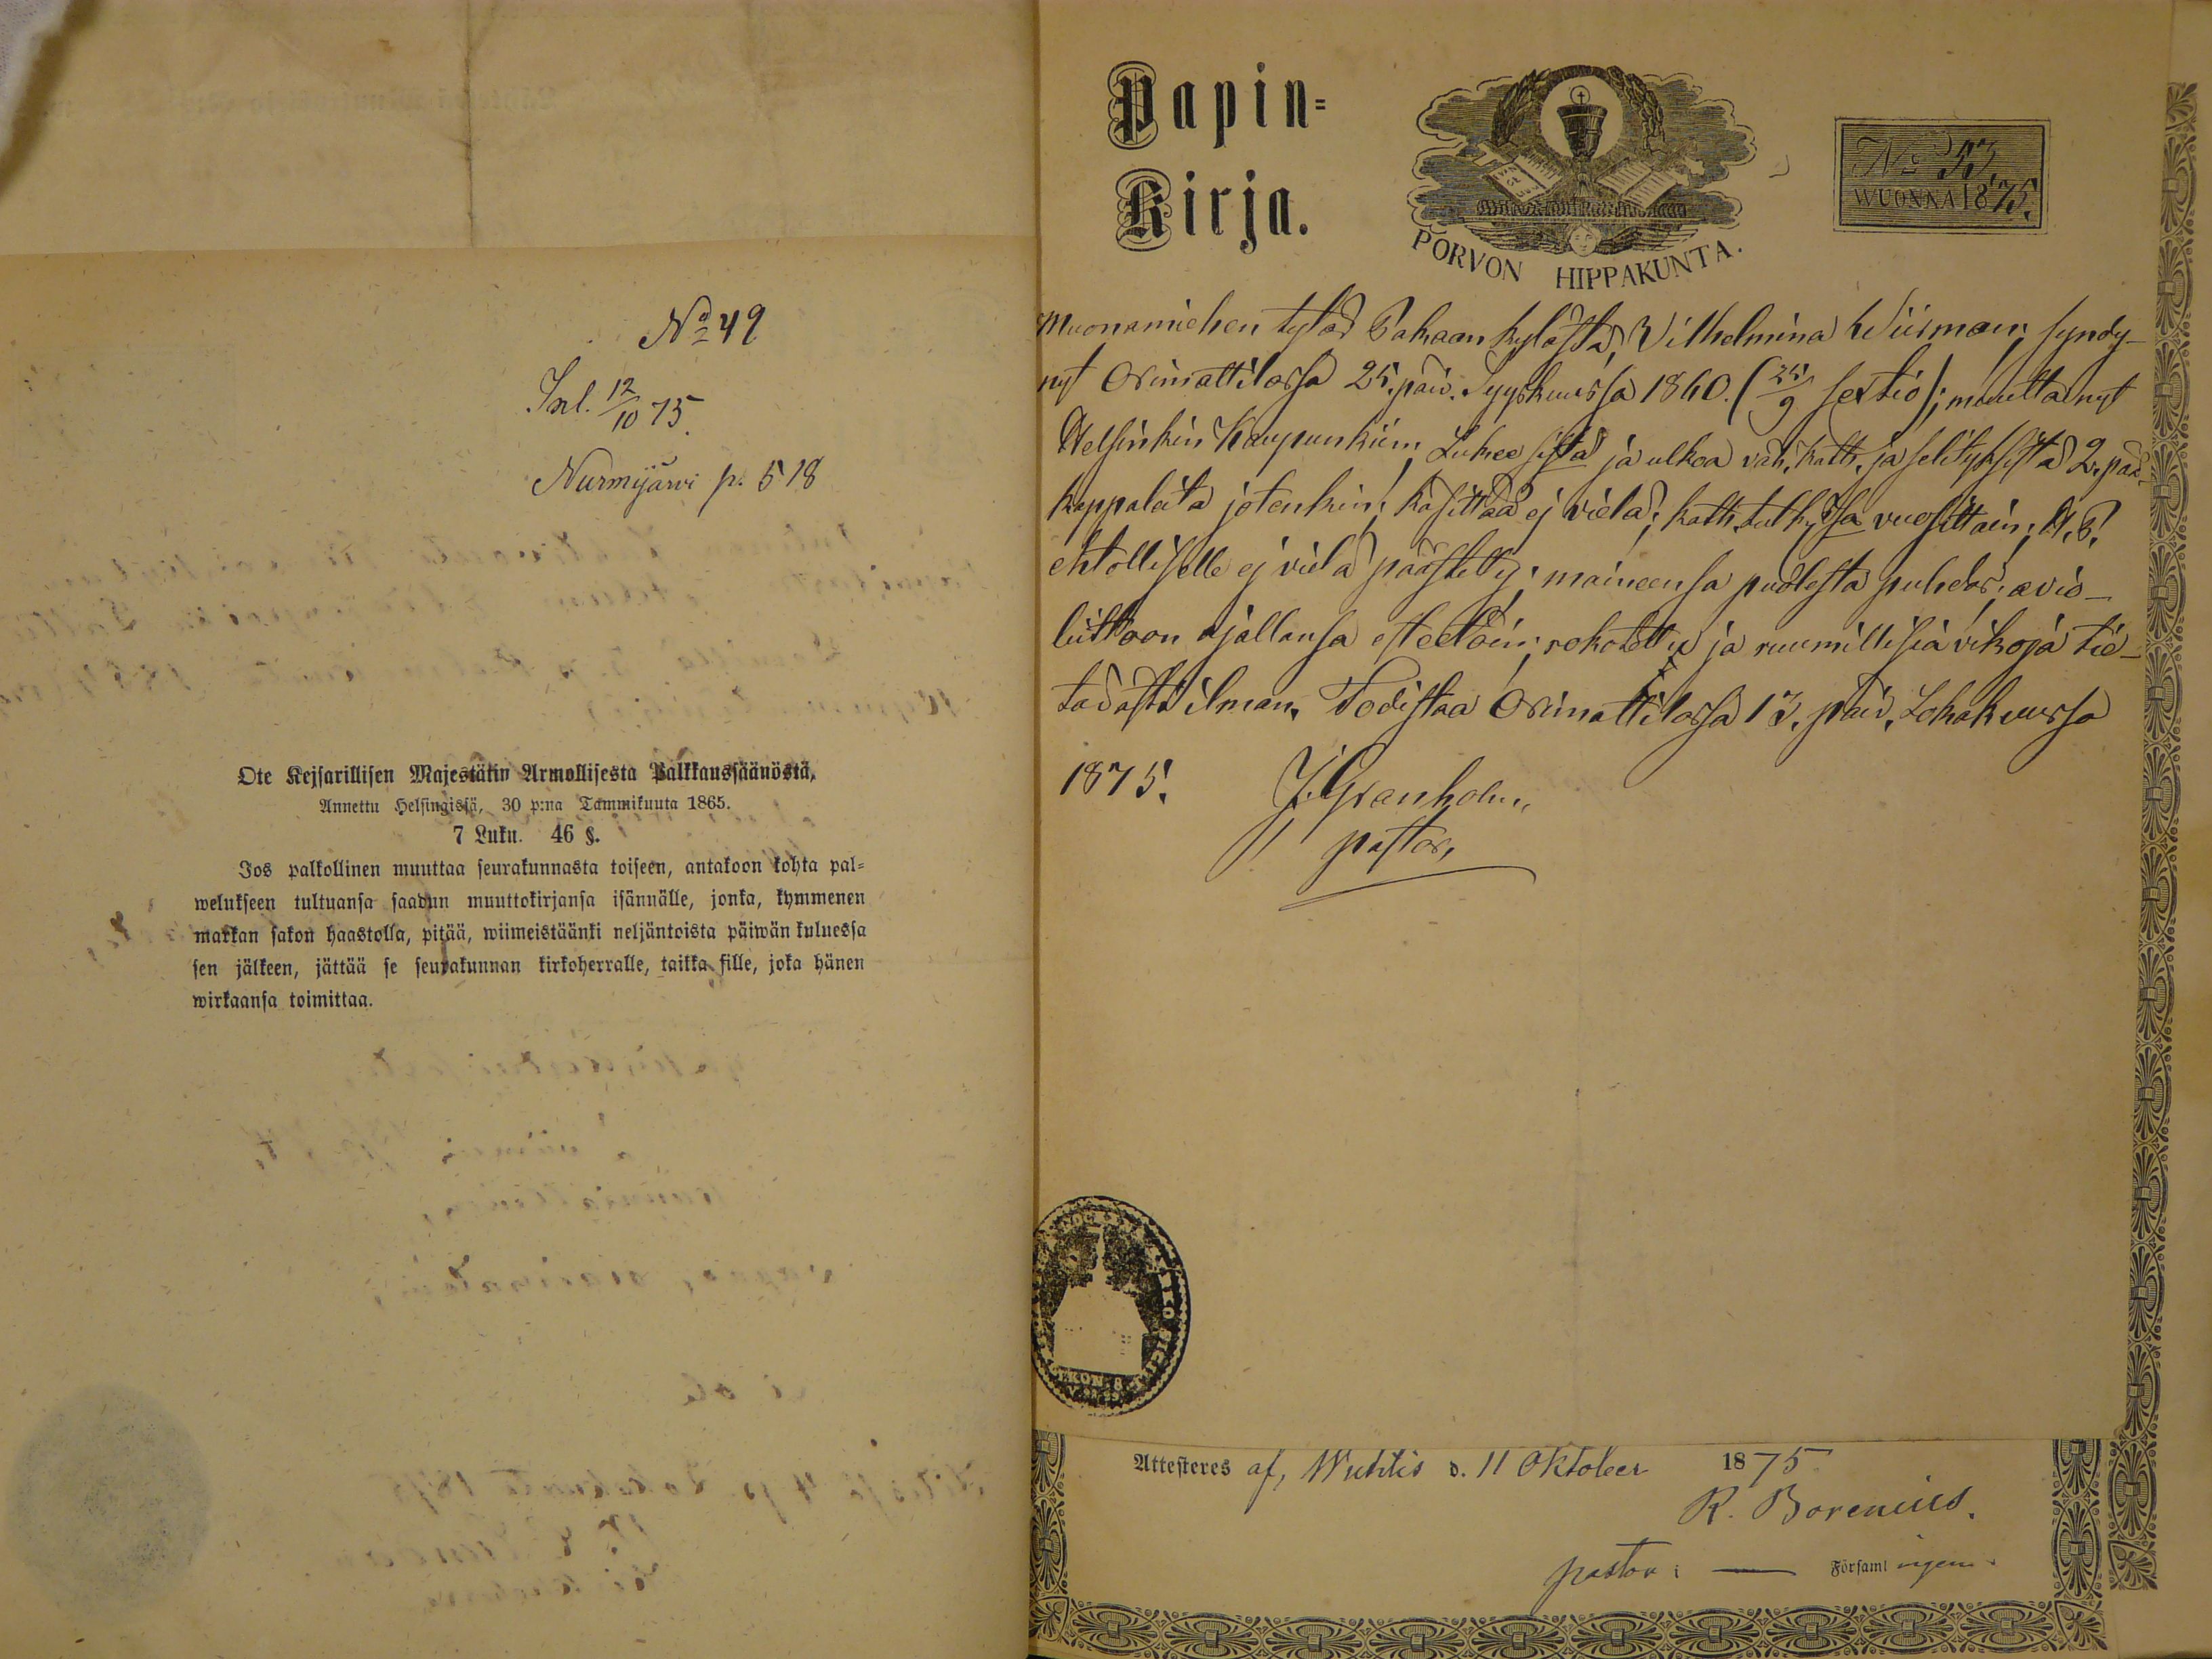 No 49
Inl. 12/10 75.
Nurmijärvi p. 518
Ote Kejsarillisen Majestätin Armollisesta Palkkaussäänöstä,
Annettu Helsingissä, 30 p:na Tammikuuta 1865.
7 Luku. 46 §.
Jos palkollinen muuttaa seurakunnasta toiseen, antakoon kohta pal=
welukseen tultuansa saadun muuttokirjansa isännälle, jonka, kymmenen
markan sakon haastolla, pitää, wiimeistäänki neljäntoista päiwän kuluessa
sen jälkeen, jättää se seurakunnan kirkoherralle, taikka sille, joka hänen
wirkaansa toimittaa.
Papin=
Kirja.
PORVON HIPPAKUNTA.
No 53
WUONNA 1875.
Muonamiehen tytär Pakaan kylästä, Vilhelmina Wiirman; syndy-
nyt Orimattilassa 25. päiv. Syyskuussa 1860. (25/9 sextio); muutta nyt
Helsinkin Kaupunkiin; Lukee sistä ja ulkoa väh. kath. ja selityksistä 2. pää-
kappaleita jotenkin; käsittää ej vielä; kath. vuosittain; H. P.
ehtolliselle ej vielä päästetty; maineensa puolesta puhdas; avio-
liittoon ajallansa esteetöin; rokotettu ja ruumillisia vikoja tie-
tävästi ilman. Todistaa Orimattilassa 13. päiv. Lokakuussa
1875. J. Granholm,
pastor,
Attesteres af, Wichtis d. 11 Oktober 1875
R. Borenius.
pastor i — Församlingen.